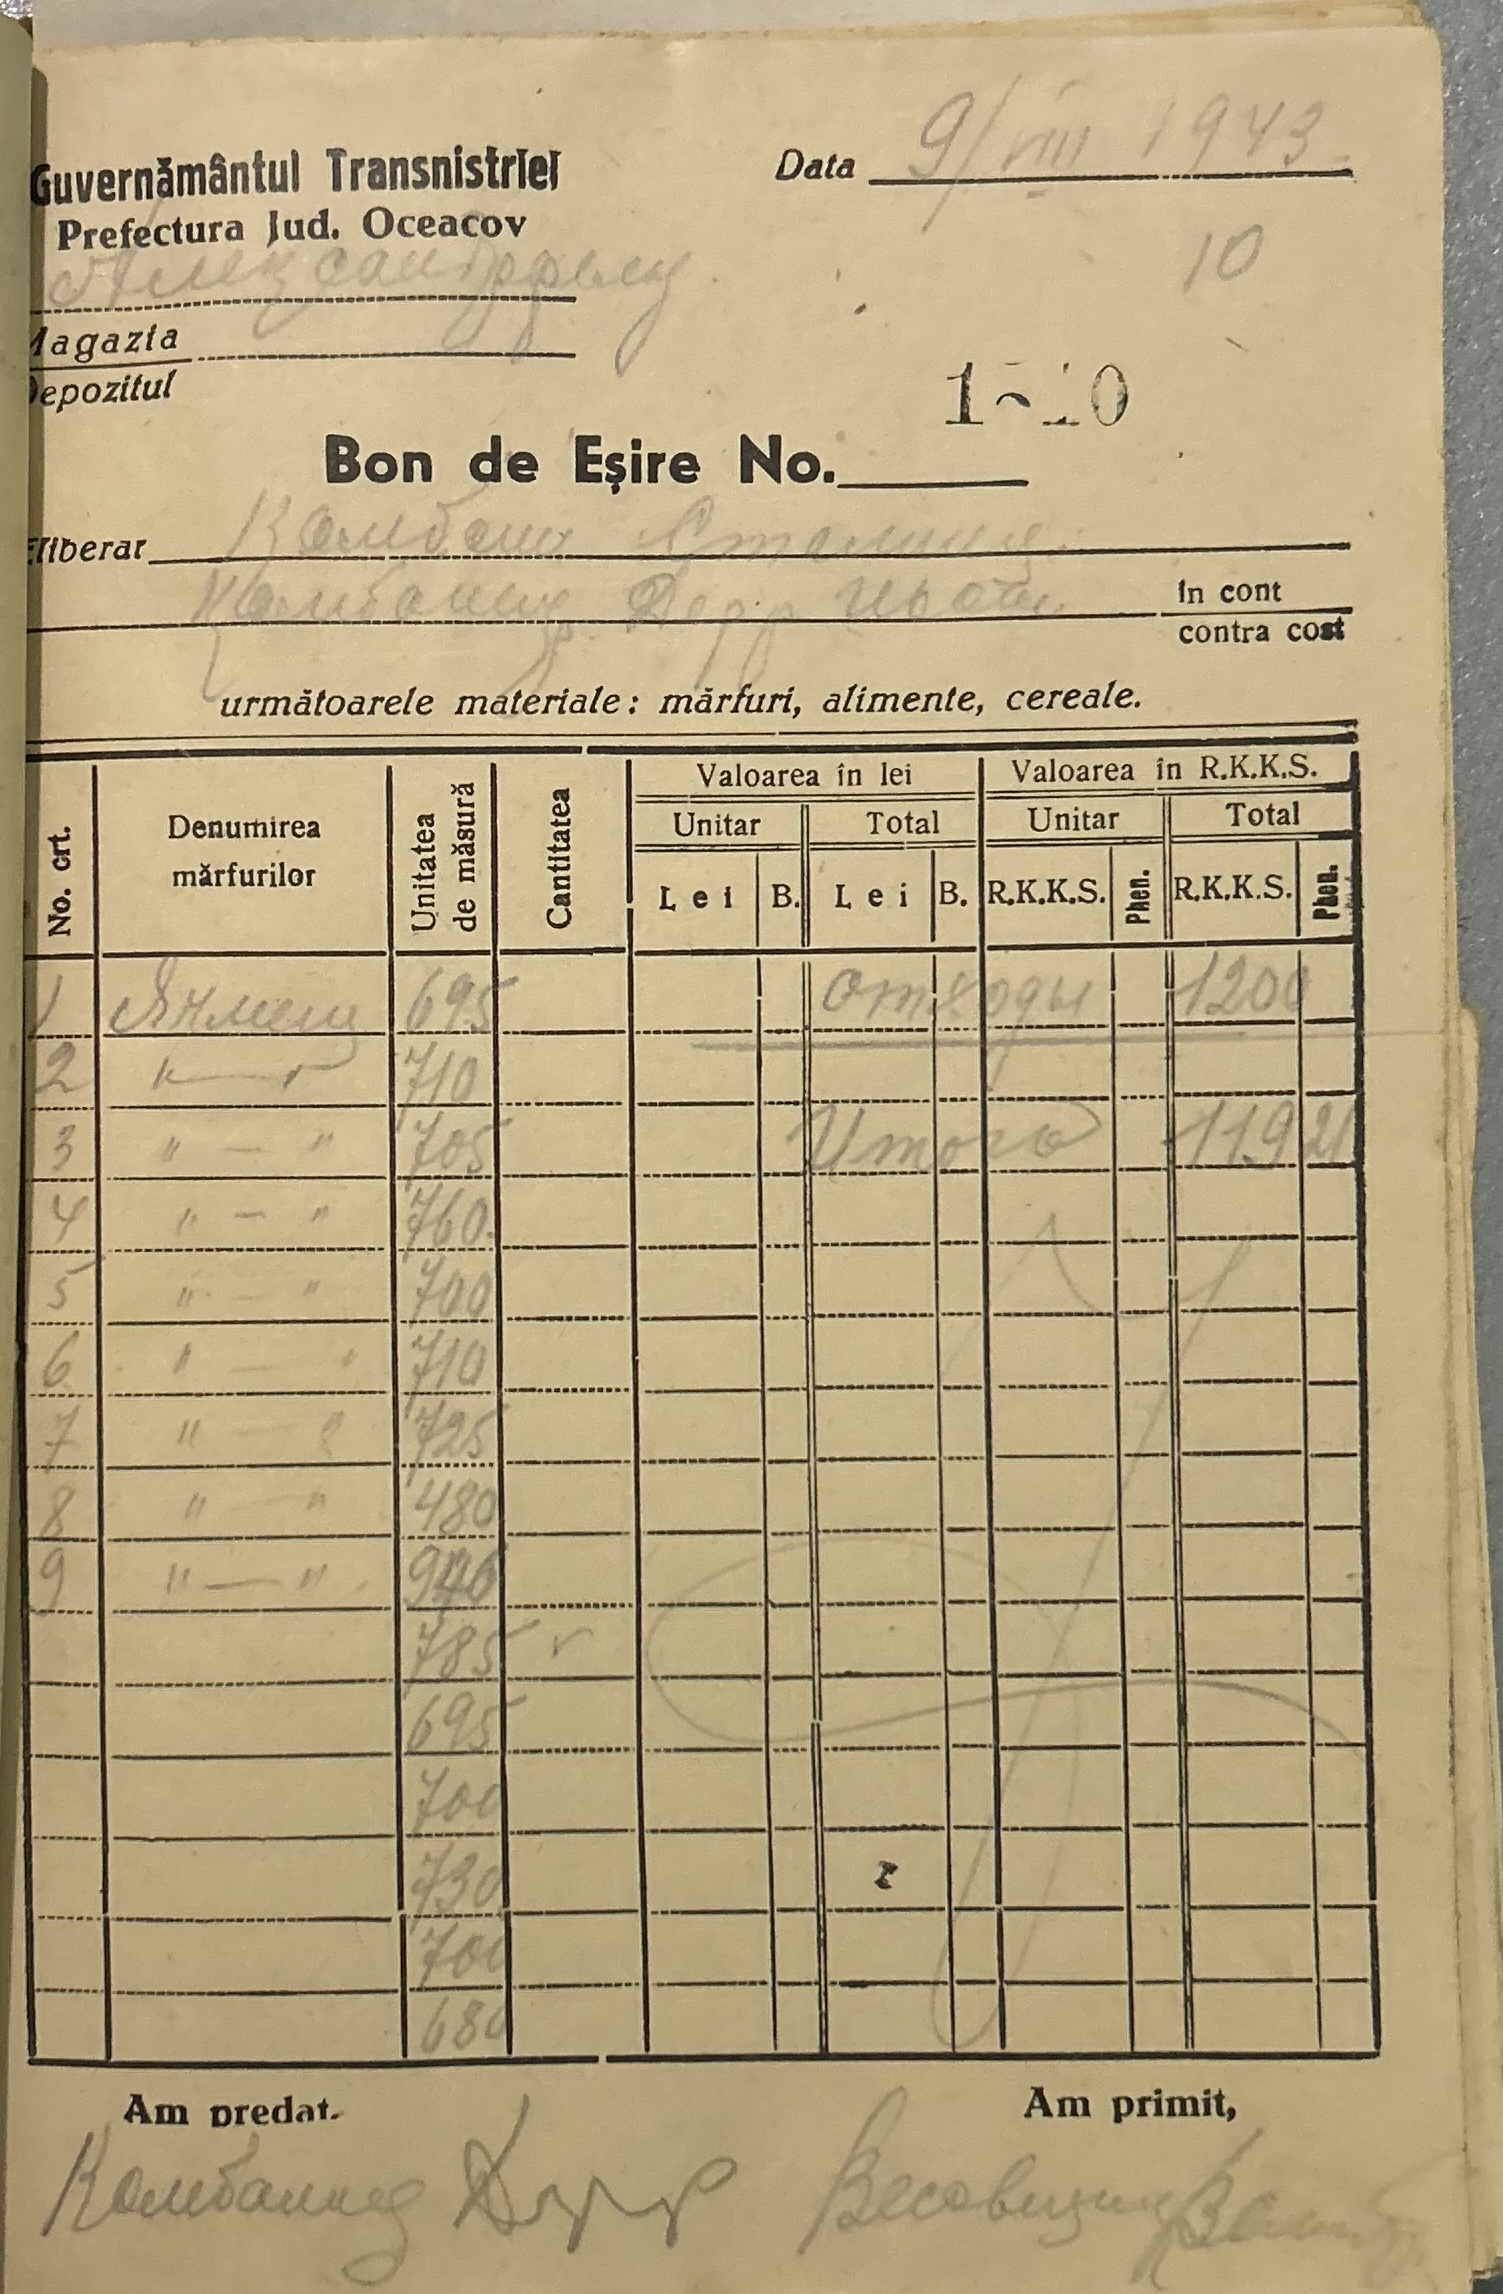 Data 9/VIII 1943
Guvernământul Transnistriei
Prefectura Jud. Oceacov
10
Magazia
Depozitul
Bon de Eşire No.
Eliberar Комбайн Сталинец
Комбайнер Дерр Иван
în cont
contra cost
următoarele materiale: mărfuri, alimente, cereale.
No. crt. Denumirea mărfurilor Unitatea de măsură Cantitatea Valoarea în lei Valoarea în R.K.K.S.
Unitar Total Unitar Total
Lei B. Lei B. R.K.K.S. Phen. R.K.K.S. Phen.
1 Ячмень 695 отходы 1200
2 "—" 710
3 " — " 705 Итого 11921
4 " — " 760
5 " — " 700
6 " — " 710
7 " — " 725
8 " — " 480
9 " — "
785
695
700
730
700
680
Am predat. Am primit,
Комбайнер Дерр Весовщик